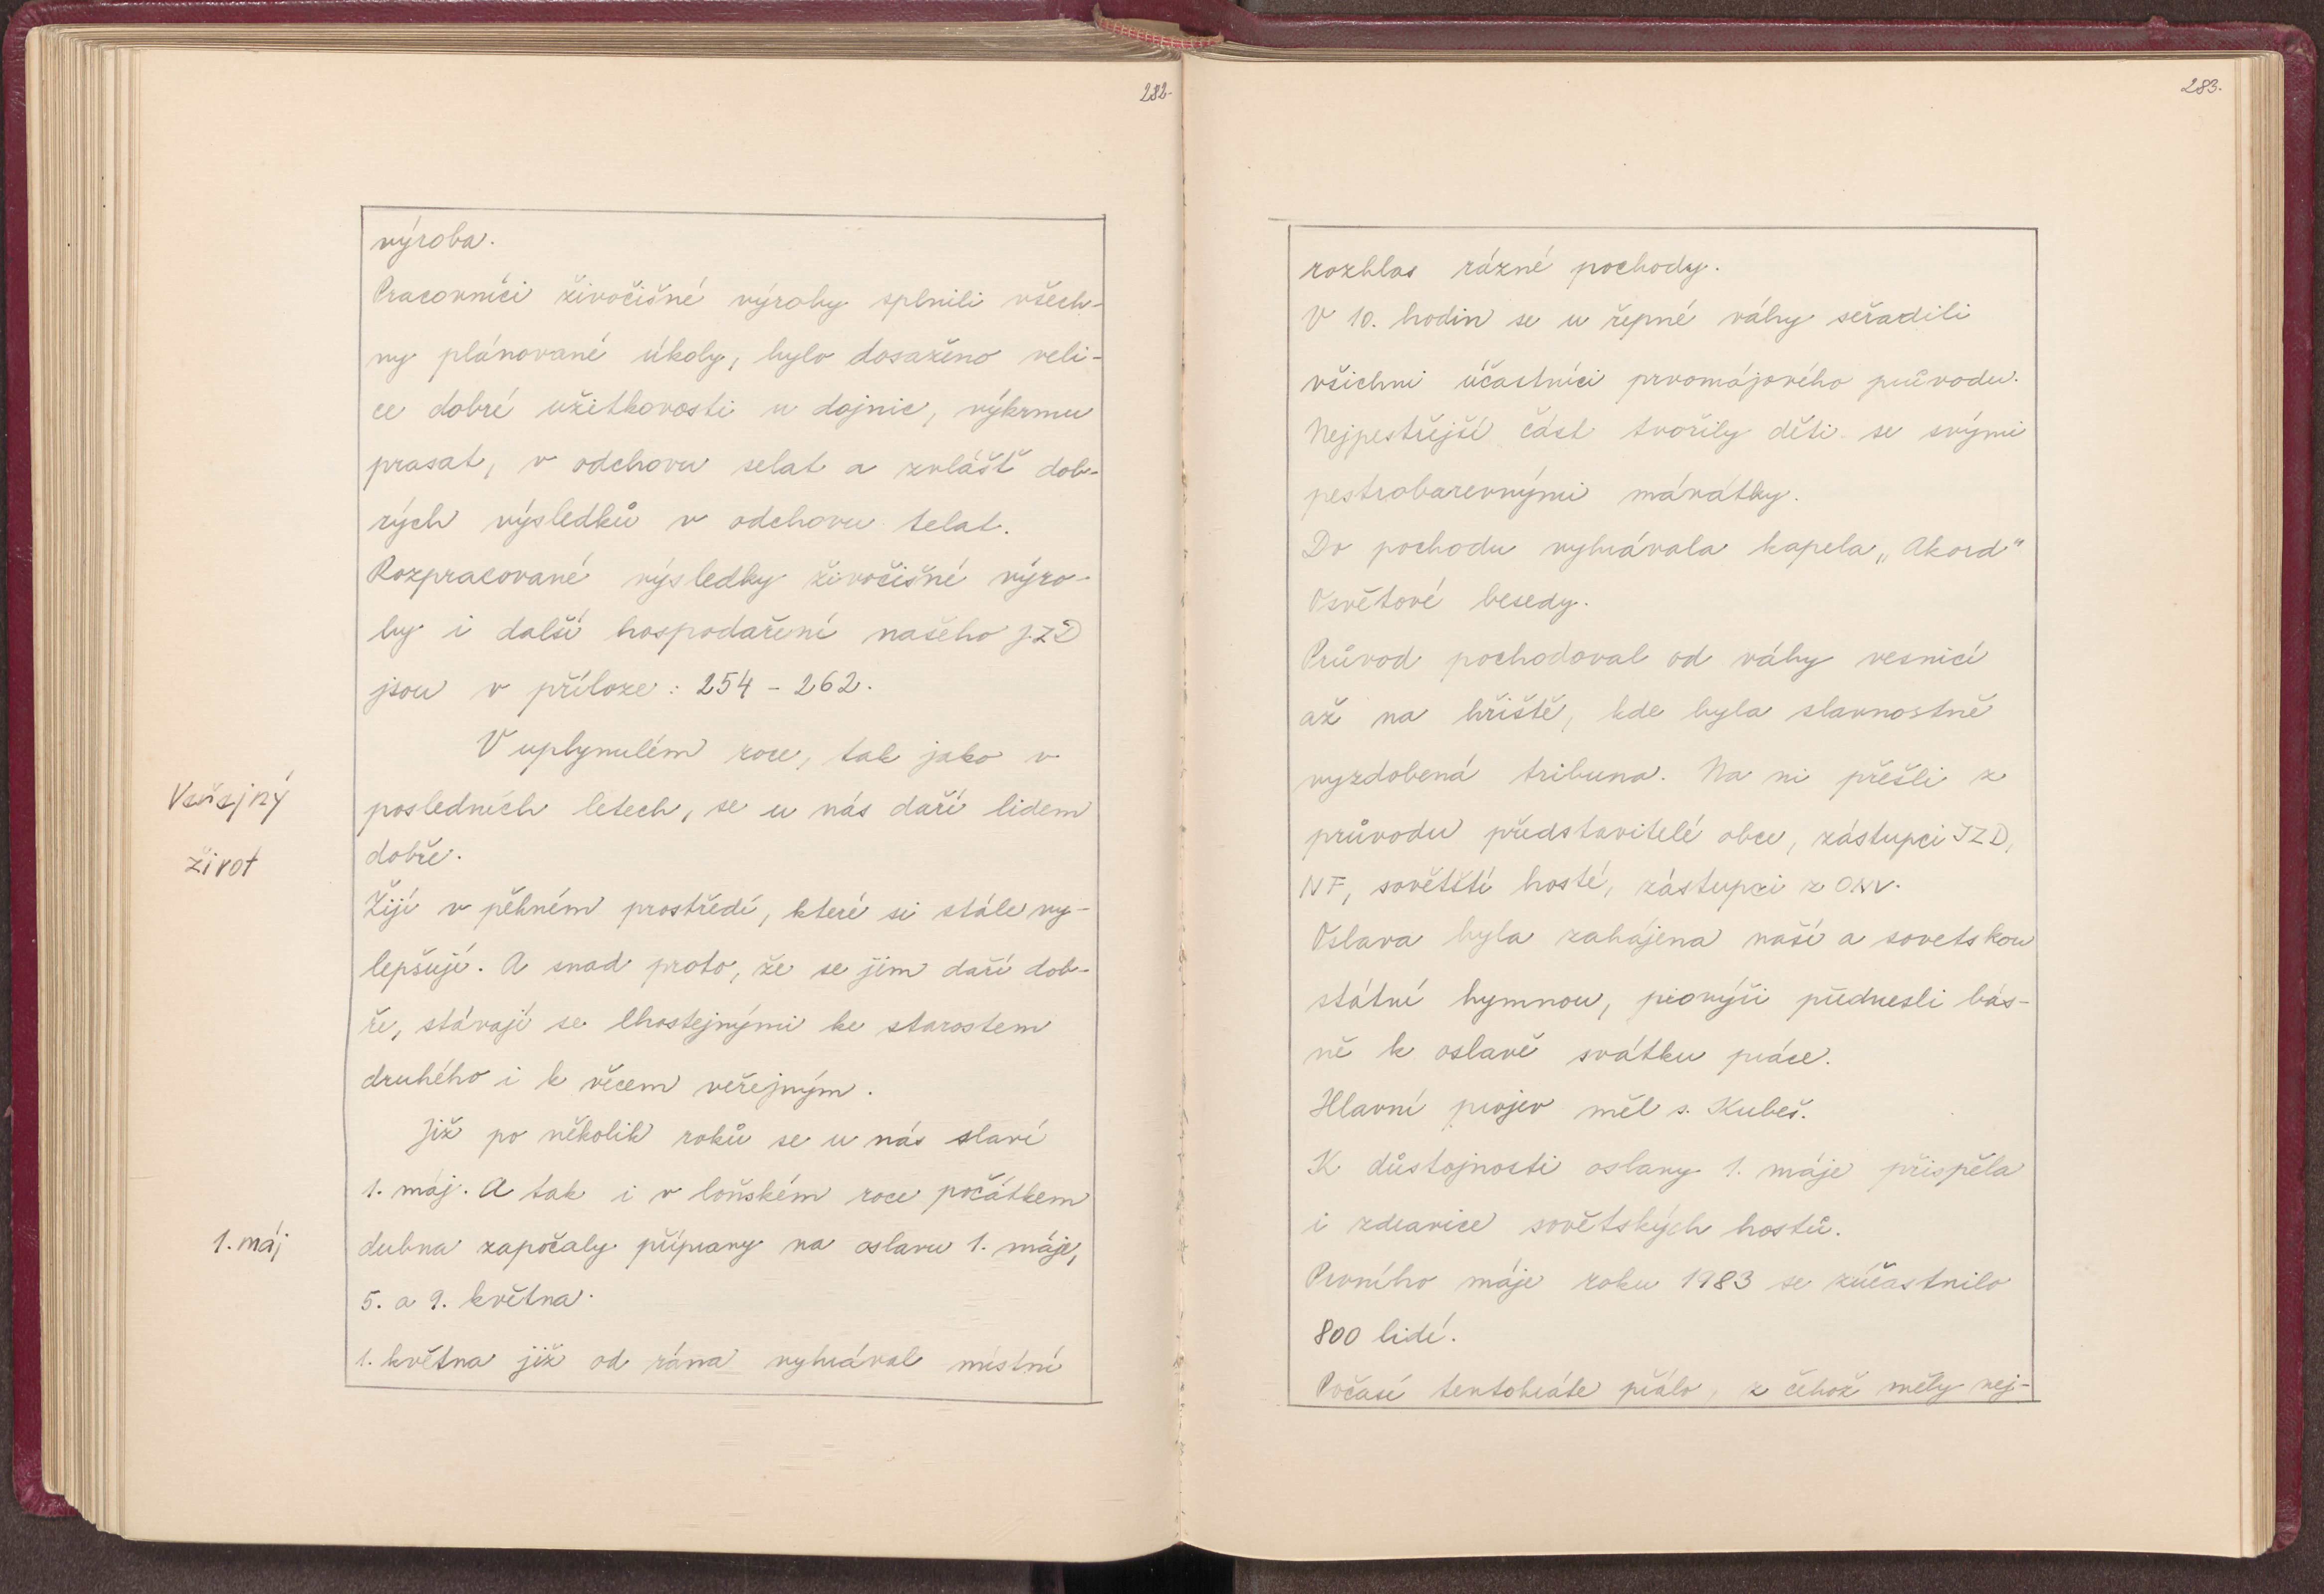 282.
výroba.
Pracovníci živočišné výroby splnili všech-
ny plánované úkoly, bylo dosaženo veli-
ce dobré užitkovosti u dojnic, výkrmu
prasat, v odchovu selat a zvláště dob-
rých výsledků v odchovu telat.
Rozpracované výsledky živočišné výro-
by i další hospodaření našeho JZD
jsou v příloze: 254 - 262.
V uplynulém roce, tak jako v
Veřejný
posledních letech, se u nás daří lidem
život
dobře.
Žijí v pěkném prostředí, které si stále vy-
lepšují. A snad proto, že se jim daří dob-
ře, stávají se lhostejnými ke starostem
druhého i k věcem veřejným.
Již po několik roků se u nás slaví
1. máj. A tak i v loňském roce počátkem
1. máj
dubna započaly přípravy na oslavu 1. máje,
5. a 9. května.
1. května již od rána vyhrával místní
283.
rozhlas rázné pochody.
V 10. hodin se u řepné váhy seřadili
všichni účastníci prvomájového průvodu.
Nejpestřejší část tvořily děti se svými
pestrobarevnými mávátky.
Do pochodu vyhrávala kapela „Akord"
Osvětové besedy.
Průvod pochodoval od váhy vesnicí
až na hřiště, kde byla slavnostně
vyzdobená tribuna. Na ni přešli z
průvodu představitelé obce, zástupci JZD,
NF, sovětští hosté, zástupci z ONV.
Oslava byla zahájena naší a sovetskou
státní hymnou, pionýři přednesli bás-
ně k oslavě svátku práce.
Hlavní projev měl s. Kubeš.
K důstojnosti oslavy 1. máje přispěla
i zdravice sovětských hostů.
Prvního máje roku 1983 se zúčastnilo
800 lidí.
Počasí tentokráte přálo, z čehož měly nej-